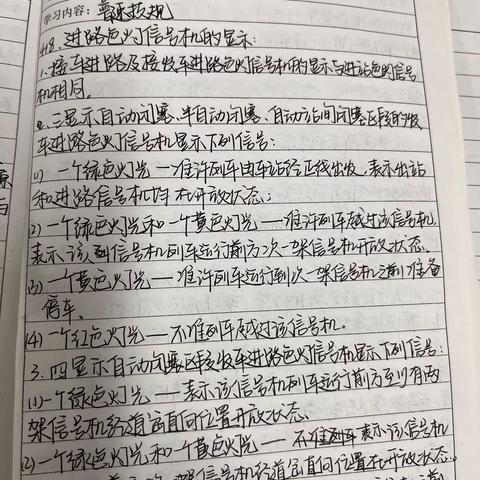 学习内容：普速技规
418、进路色灯信号机的显示：
1、接车进路及接发车进路色灯信号机的显示与进站色灯信号
机相同。
2、三显示自动闭塞、半自动闭塞、自动站间闭塞区段的发
车进路色灯信号机显示下列信号：
(1) 一个绿色灯光—准许列车由车站经正线出发，表示出站
和进路信号机均在开放状态；
(2) 一个绿色灯光和一个黄色灯光——准许列车越过该信号机，
表示该列信号机列车运行前方次一架信号机开放状态。
(3) 一个黄色灯光—准许列车运行到次一架信号机之前准备
停车。
(4) 一个红色灯光—不准列车越过该信号机。
3、四显示自动闭塞区段发车进路色灯信号机显示下列信号：
(1) 一个绿色灯光——表示该信号机列车运行前方至少有两
架信号机经道岔直向位置开放状态
(2) 一个绿色灯光和一个黄色灯光——不准列车表示该信号机
架信号机经道岔直向位置在开放状态。